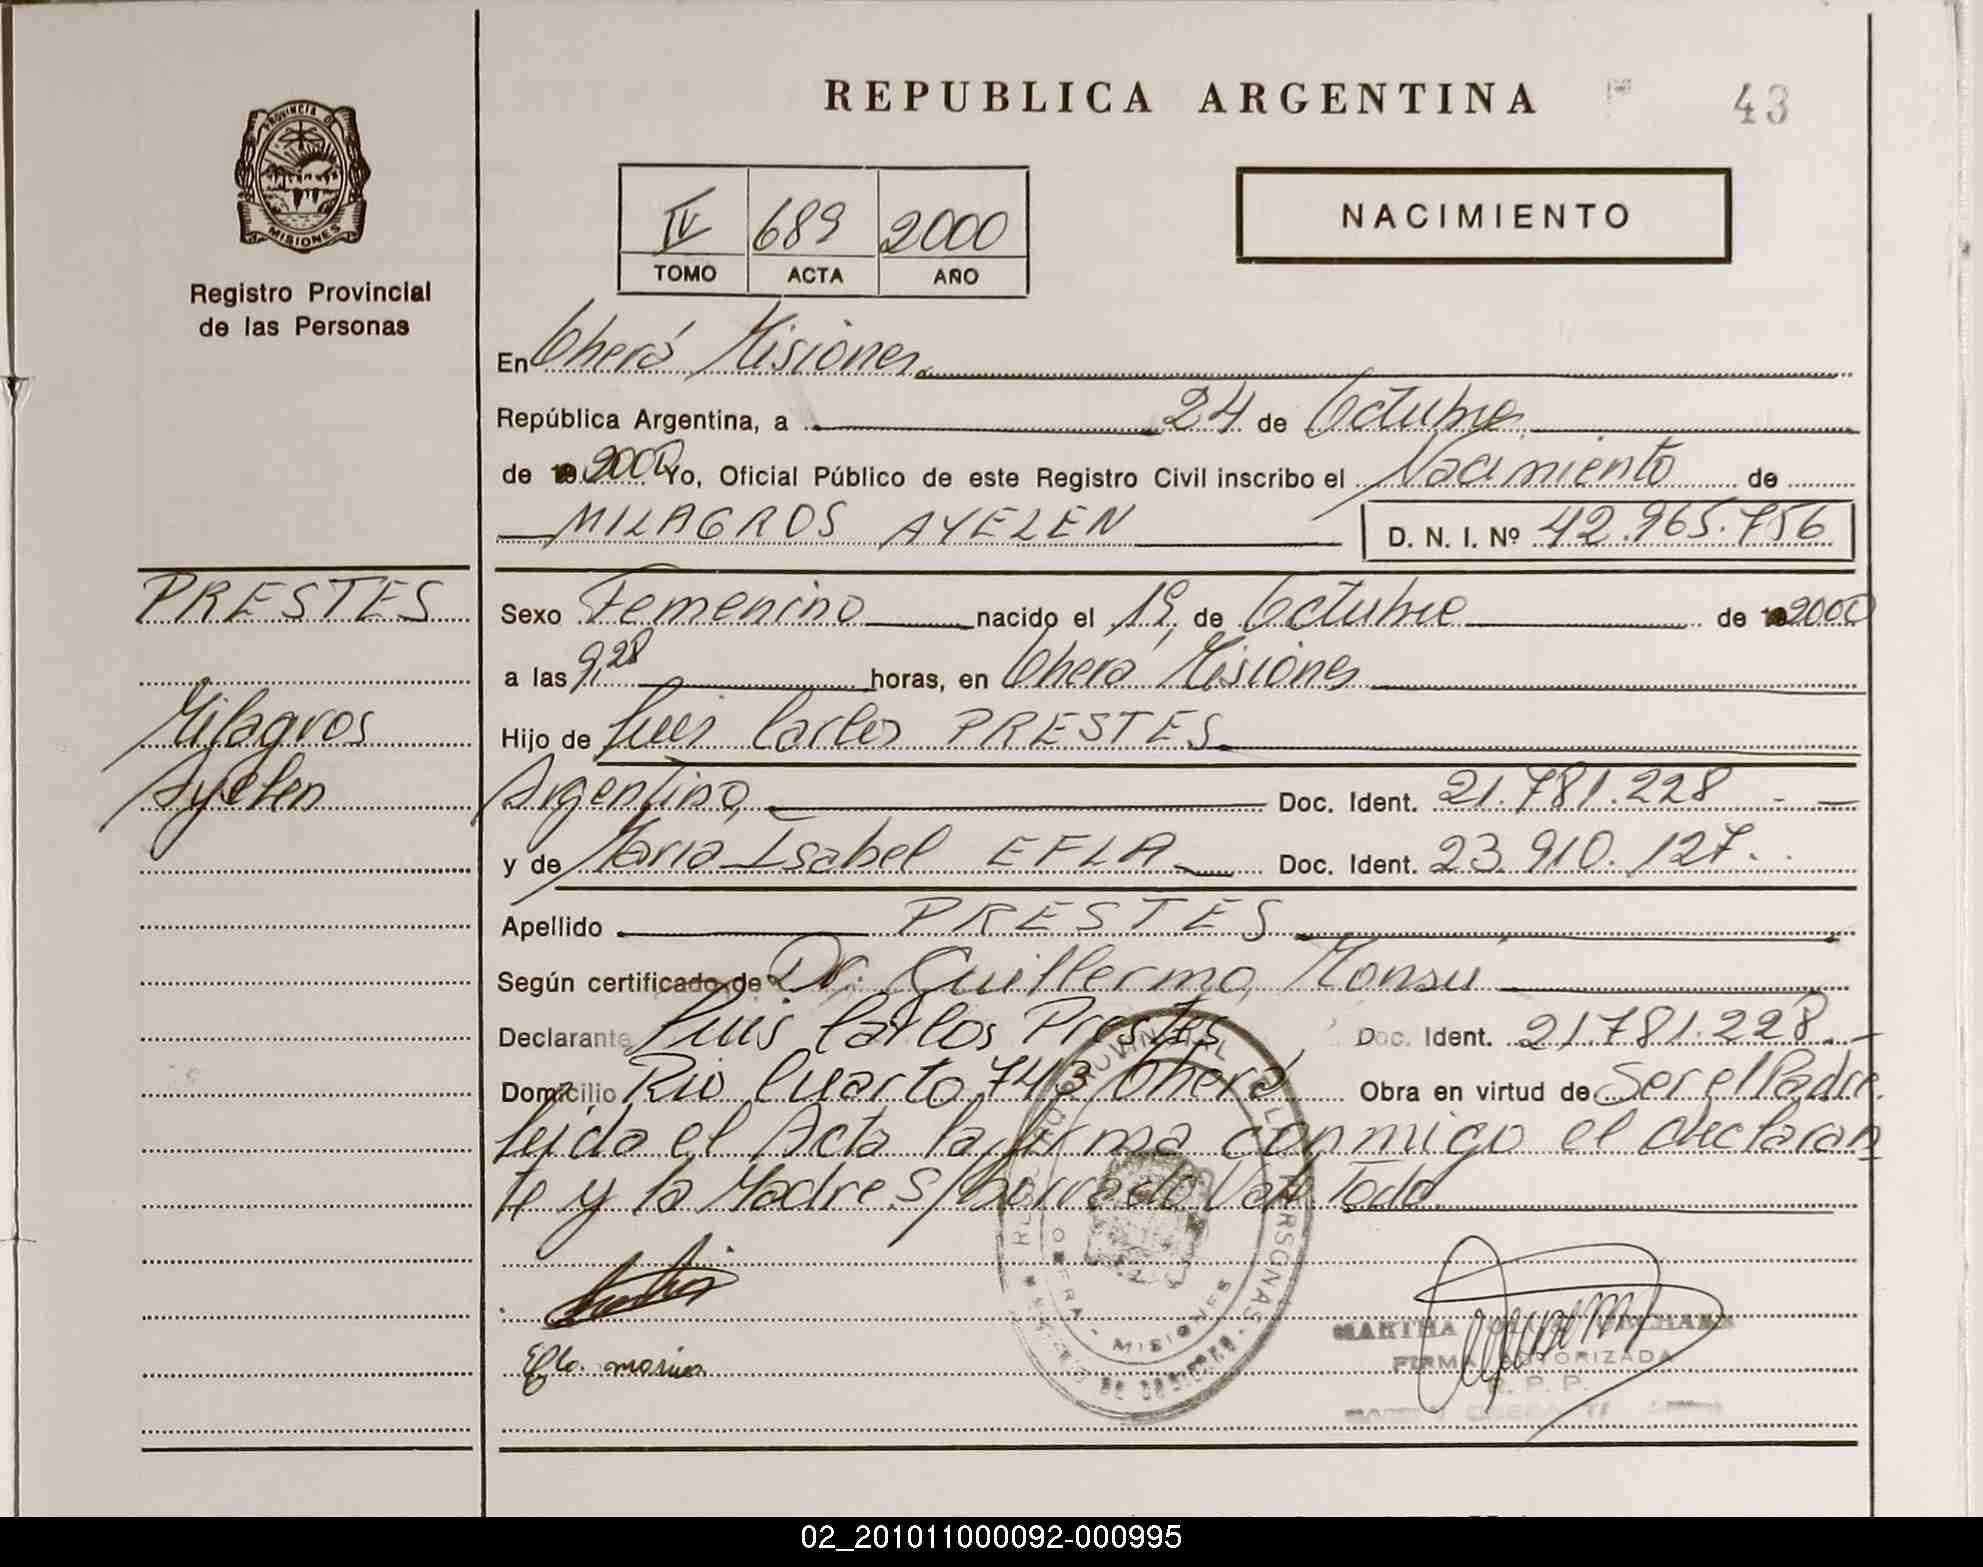 REPUBLICA ARGENTINA
43
PROVINCIA DE
MISIONES
Registro Provincial
de las Personas
IV 689 2000
TOMO ACTA AÑO
NACIMIENTO
En Oberá Misiones
República Argentina, a 24 de Octubre
de 2000 Yo, Oficial Público de este Registro Civil inscribo el Nacimiento de
MILAGROS AYELEN D. N. I. Nº 42.965.756
PRESTES
Milagros
Ayelen
Sexo Femenino nacido el 19 de Octubre de 2000
a las 9,28 horas, en Oberá Misiones
Hijo de Luis Carlos PRESTES
Argentino, Doc. Ident. 21.781.228
y de Maria Isabel EFLA Doc. Ident. 23.910.127.
Apellido PRESTES
Según certificado de Dr. Guillermo Monsu
Declarante Luis Carlos Prestes Doc. Ident. 21781.228
Domicilio Rio Cuarto 743 Oberá Obra en virtud de Ser el Padre.
leida el Acta la firma conmigo el declaran
te y la Madre S/borrado Vale Todo
Efla. maria
REGISTRO PROVINCIAL DE LAS PERSONAS
OBERA - MISIONES
MARTHA
FIRMA AUTORIZADA
R. P. P.
02_201011000092-000995